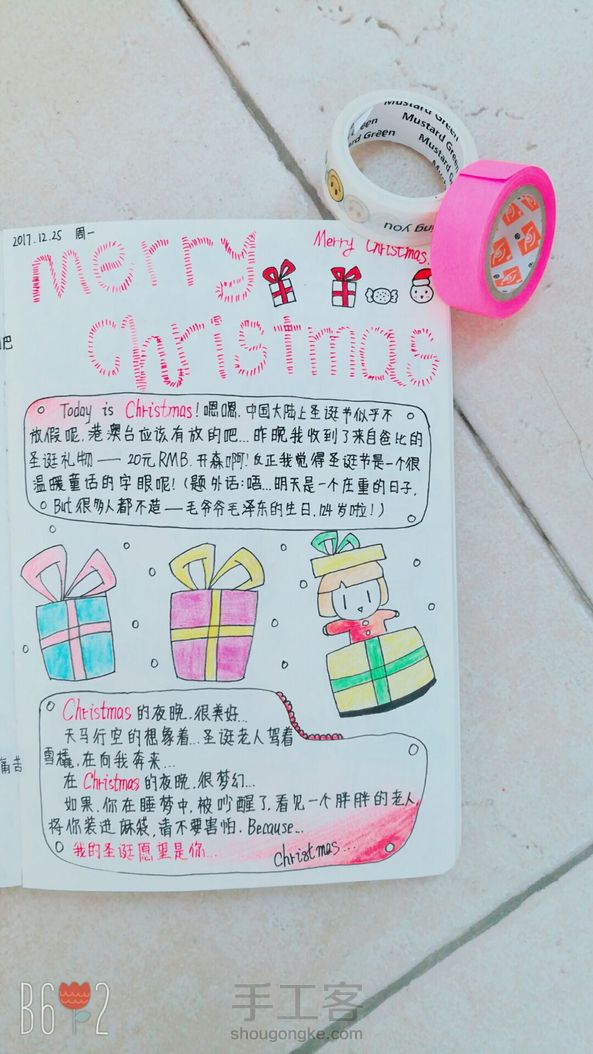 Mustard Green
Mustard Green
Mustard
ard Green
ing you
2017.12.25 周一
Merry
Merry Christmas.
Christmas
吧
Today is Christmas! 嗯嗯.中国大陆上圣诞节似乎不
放假呢.港澳台应该有放的吧...昨晚我收到了来自爸比的
圣诞礼物——20元RMB.开森啊!反正我觉得圣诞节是一个很
温暖童话的字眼呢!(题外话:唔...明天是一个庄重的日子.
But 很多人都不造——毛爷爷毛泽东的生日.124岁啦!)
Christmas 的夜晚.很美好...
天马行空的想象着...圣诞老人驾着
雪橇,在向我奔来...
在Christmas的夜晚.很梦幻...
如果.你在睡梦中,被吵醒了.看见一个胖胖的老人
将你装进麻袋,请不要害怕.Because...
我的圣诞愿望是你...
Christmas...
痛苦
B612
手工客
shougongke.com